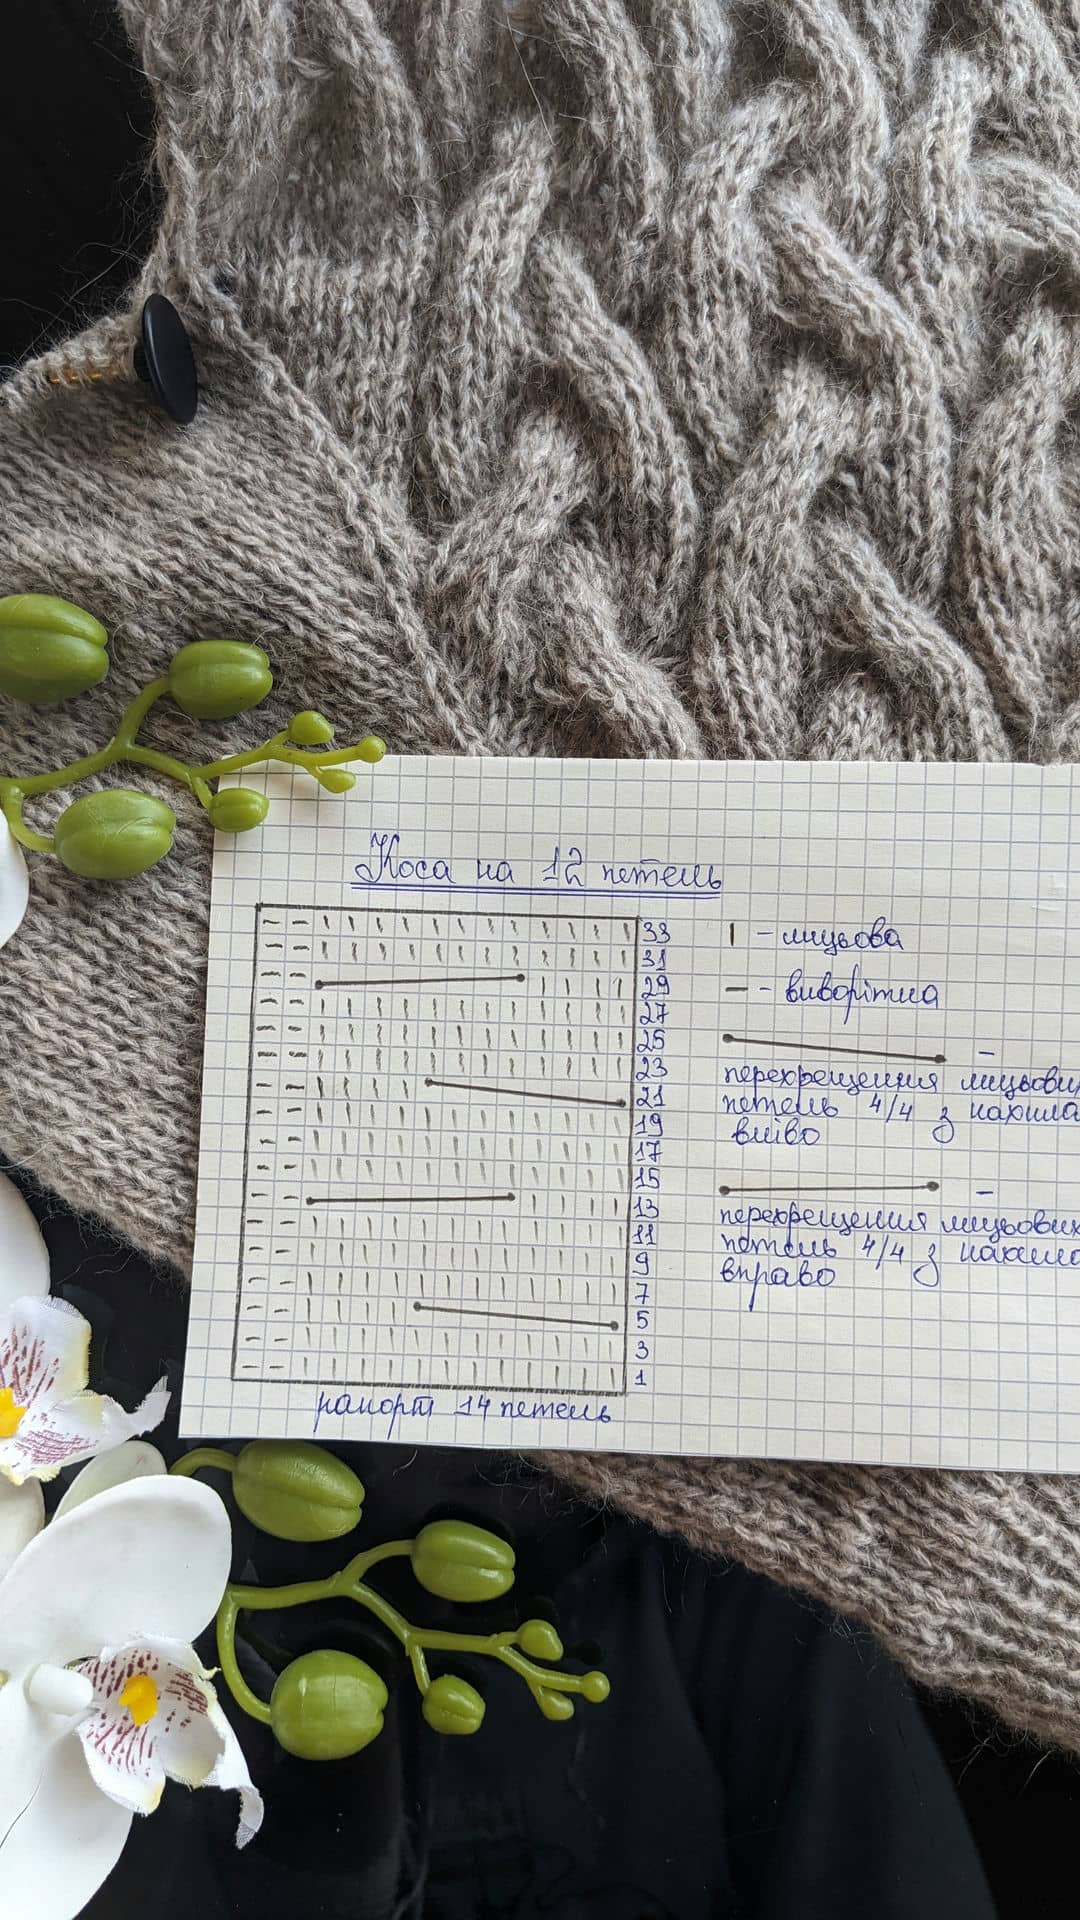 Коса на 12 петель
33
31
29
27
25
23
21
19
17
15
13
11
9
7
5
3
1
рапорт 14 петель
| - лицьова
— - виворітна
—
перехрещення лицьових
петель 4/4 з нахило
вліво
—
перехрещення лицьових
петель 4/4 з нахило
вправо